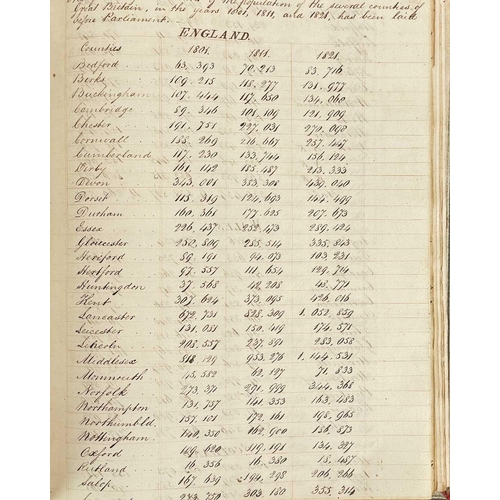 of the population of the several counties of
Great Britain, in the years 1801, 1811, and 1821, has been laid
before Parliament.
ENGLAND.
Counties 1801. 1811. 1821.
Bedford. 63,393 70,213 83,716
Berks 109,215 118,277 131,977
Buckingham 107,444 117,650 134,060
Cambridge 89,346 101,109 121,909
Chester 191,751 227,031 270,098
Cornwall 188,269 216,667 257,447
Cumberland 117,230 133,744 156,124
Derby 161,142 185,487 213,333
Devon 343,001 383,308 439,040
Dorset 115,319 124,693 144,499
Durham 160,361 177,625 207,673
Essex 226,437 252,473 289,424
Gloucester 250,809 285,514 335,843
Hereford 89,191 94,073 103,231
Hertford 97,557 111,654 129,714
Huntingdon 37,568 42,208 48,771
Kent 307,624 373,095 426,016
Lancaster 672,731 828,309 1,052,859
Leicester 131,081 150,419 174,571
Lincoln 208,557 237,891 283,058
Middlesex 818,129 953,276 1,144,531
Monmouth 45,582 62,127 71,833
Norfolk 273,371 291,999 344,368
Northampton 131,757 141,353 163,483
Northumbld. 157,101 172,161 198,965
Nottingham 140,350 162,900 186,873
Oxford 109,620 119,191 134,327
Rutland 16,356 16,380 18,487
Salop 167,639 194,298 206,266
243,750 303,180 355,314